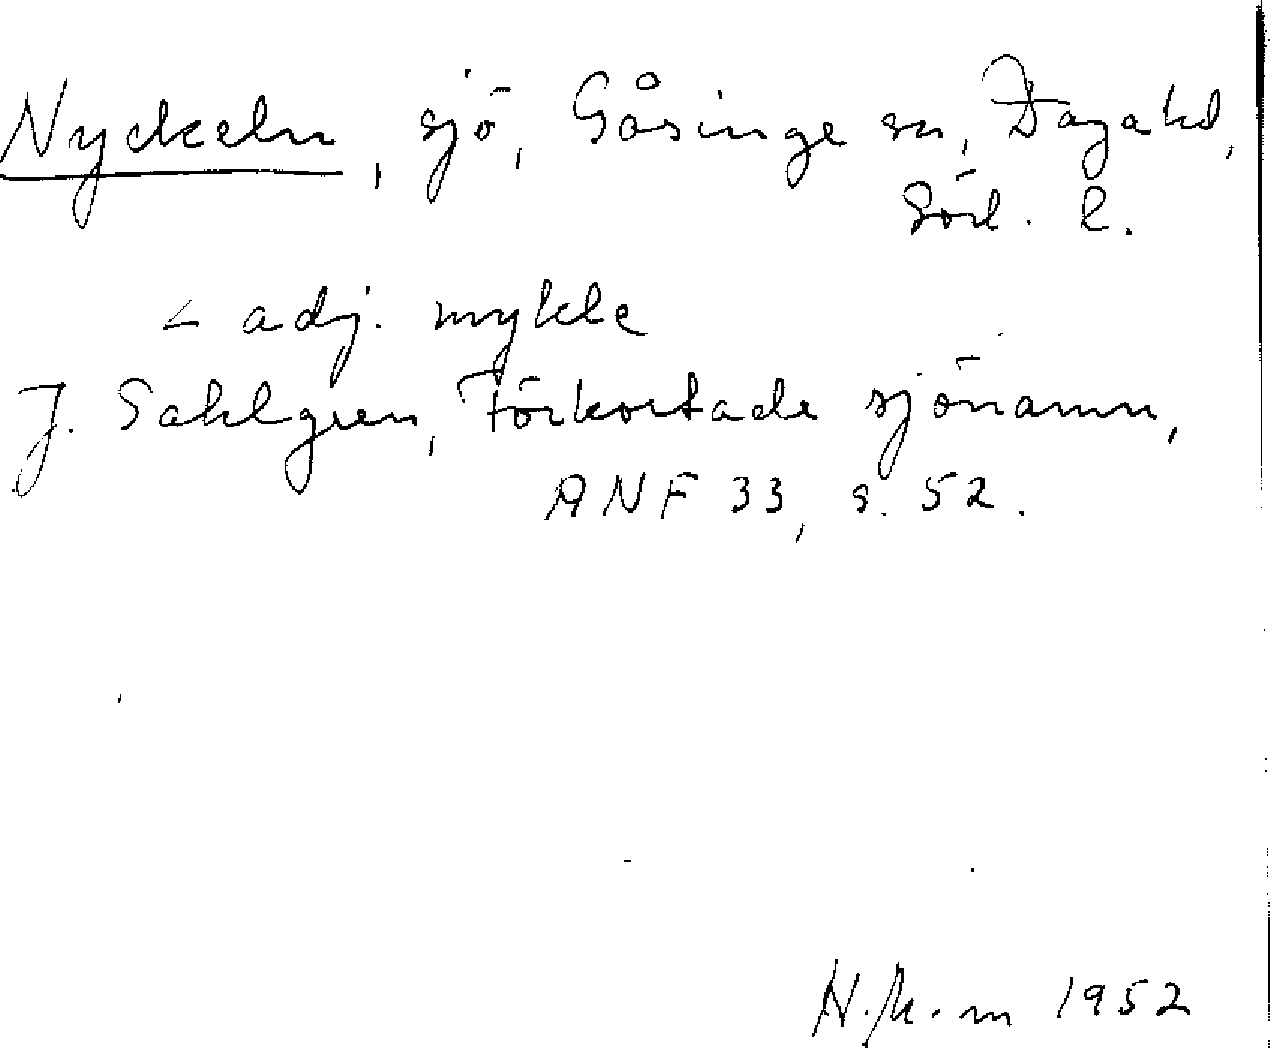 Nyckeln, sjö, Gåsinge sn, Dagahd,
Söd. l.
< adj. mykle
J. Sahlgren, Förkortade sjönamn,
ANF 33, s. 52.
1952